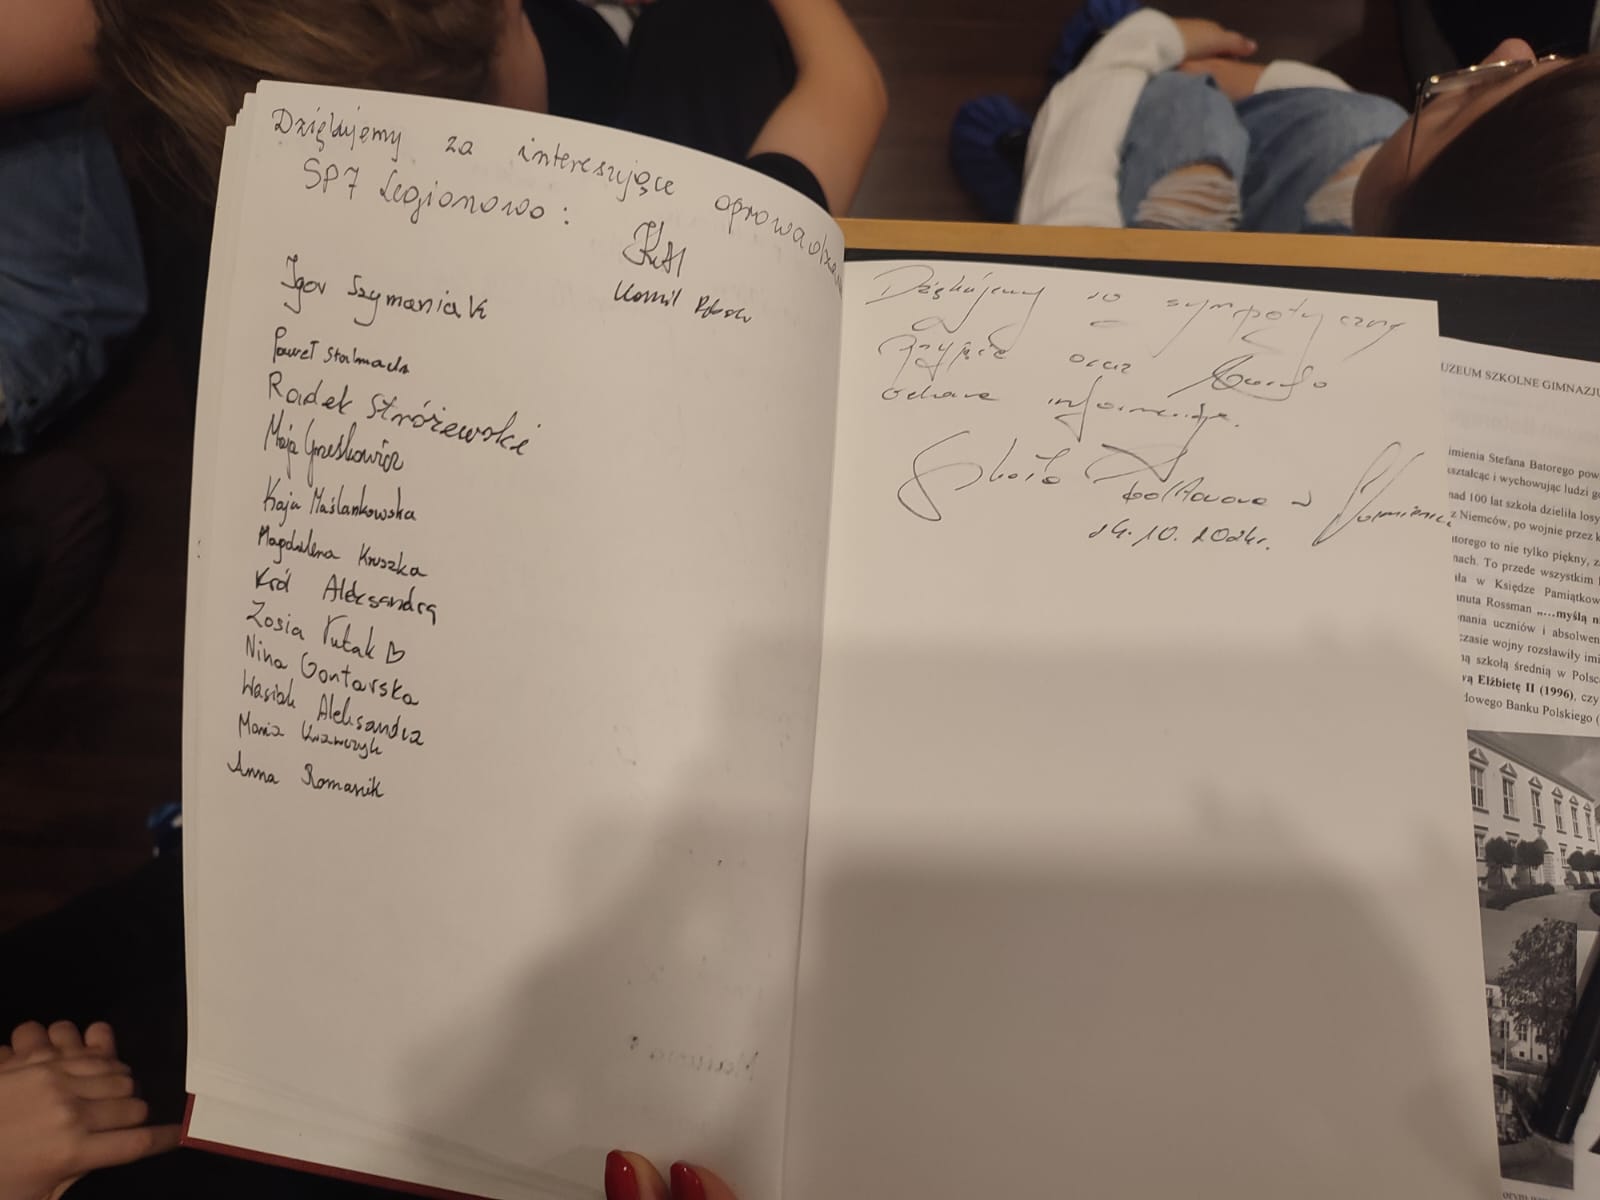 Dziękujemy za interesujące oprowadza
SP7 Legionowo:
Kamil
Igor Szymaniak
Paweł Stalmach
Radek Stróżewski
Maja Grześkowicz
Kaja Maślankowska
Magdalena Kruszka
Król Aleksandra
Zosia Tutak ♡
Nina Gontarska
Wasiak Aleksandra
Maria Krawczyk
Anna Romanik
Dziękujemy za sympatyczne
przyjęcie oraz bardzo
ciekawe informacje.
Szkoła Podstawowa w
24.10.2024r.
UZEUM SZKOLNE GIMNAZJU
imienia Stefana Batorego pow
kształcąc i wychowując ludzi g
nad 100 lat szkoła dzieliła losy
z Niemców, po wojnie przez k
atorego to nie tylko piękny, z
nach. To przede wszystkim
ała w Księdze Pamiątkow
anuta Rossman „...myślą n
onania uczniów i absolwen
czasie wojny rozsławiły imi
ną szkołą średnią w Polsc
wą Elżbietę II (1996), czy
dowego Banku Polskiego (